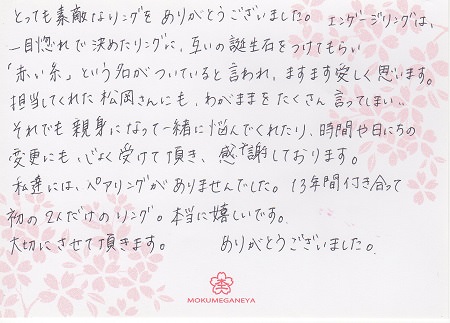 とっても素敵なリングをありがとうございました。エンゲージリングは、
一目惚れで決めたリングに、互いの誕生石をつけてもらい
「赤い糸」という名がついていると言われ、ますます愛しく思います。
担当してくれた松岡さんにも、わがままをたくさん言ってしまい..
それでも親身になって一緒に悩んでくれたり、時間や日にちの
変更にも、心よく受けて頂き、感謝しております。
私達には、ペアリングがありませんでした。13年間付き合って
初の2人だけのリング。本当に嬉しいです。
大切にさせて頂きます。 ありがとうございました。
MOKUMEGANEYA